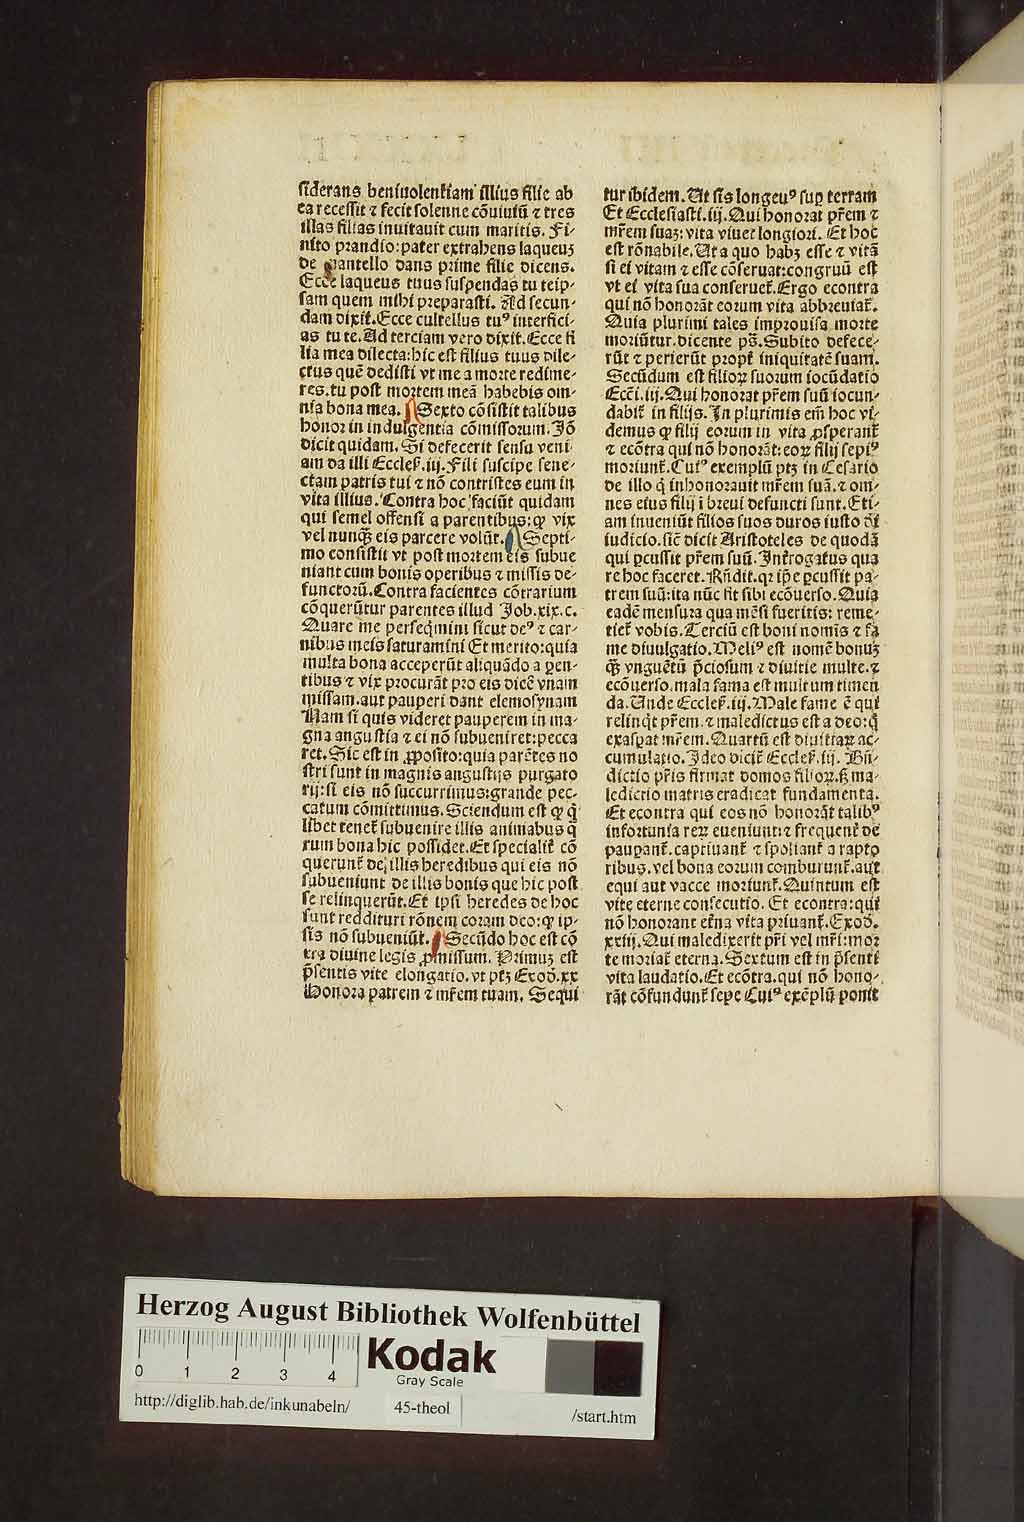 siderans beniuolentiam illius filie ab
ea recessit ⁊ fecit solenne cõuiuiũ ⁊ tres
illas filias inuitauit cum maritis. Fi-
nito prandio: pater extrahens laqueuʒ
de mantello dans prime filie dicens.
Ecce laqueus tuus suspendas tu teip-
sam quem mihi preparasti. Ad secun-
dam dixit. Ecce cultellus tuꝰ interfici-
as tu te. Ad terciam vero dixit. Ecce fi
lia mea dilecta: hic est filius tuus dile-
ctus quē dedisti vt me a morte redime-
res. tu post mortem meã habebis om-
nia bona mea. Sexto cõsistit talibus
honor in indulgentia cõmissorum. Jõ
dicit quidam. Si defecerit sensu veni
am da illi Eccleſ. iij. Fili suscipe sene-
ctam patris tui ⁊ nõ contristes eum in
vita illius. Contra hoc faciũt quidam
qui semel offensi a parentibus: ꝙ vix
vel nunqꝫ eis parcere volũt. Septi-
mo consistit vt post mortem eis subue
niant cum bonis operibus ⁊ missis de-
functorũ. Contra facientes cõtrarium
cõquerũtur parentes illud Job. xix. c.
Quare me perseq̃mini sicut deꝰ ⁊ car-
nibus meis saturamini Et merito: quia
multa bona acceperũt aliquãdo a ꝑen-
tibus ⁊ vix procurãt pro eis dicē vnam
missam. aut pauperi dant elemosynam
Nam si quis videret pauperem in ma-
gna angustia ⁊ ei nõ subueniret: pecca
ret. Sic est in ꝓposito: quia parētes no
stri sunt in magnis angustijs purgato
rij: si eis nõ succurrimus: grande pec-
catum cõmittimus. Sciendum est ꝙ q̃
libet tenet̃ subuenire illis animabus q̃
rum bona hic possidet. Et specialit̃ cõ
querunt̃ de illis heredibus qui eis nõ
subueniunt de illis bonis que hic post
se relinquerũt. Et ipsi heredes de hoc
sunt reddituri rõnem coram deo: ꝙ ip-
sis nõ subueniũt. Secũdo hoc est cõ
tra diuine legis ꝓmissum. Primuʒ est
p̃sentis vite elongatio. vt ptʒ Exod̃. xx
Honora patrem ⁊ mr̃em tuam. Sequi
tur ibidem. Ut sis longeuꝰ suꝑ terram
Et Ecclesiasti. iij. Qui honorat pr̃em ⁊
mr̃em suaʒ: vita viuet longiori. Et hoc
est rõnabile. Ut a quo habʒ esse ⁊ vitã
si ei vitam ⁊ esse cõseruat: congruũ est
vt ei vita sua conseruet̃. Ergo econtra
qui nõ honorãt eorum vita abbreuiat̃.
Quia plurimi tales improuisa morte
moriũtur. dicente ps̃. Subito defece-
rũt ⁊ perierũt propt̃ iniquitatē suam.
Secũdum est filioꝝ suorum iocũdatio
Ecci̇. iij. Qui honorat pr̃em suũ iocun-
dabit̃ in filijs. In plurimis em̃ hoc vi-
demus ꝙ filij eorum in vita ꝓsperant̃
⁊ ecõtra qui nõ honorãt: eoꝝ filij sepiꝰ
moriunt̃. Cuiꝰ exemplũ ptʒ in Cesario
de illo q̃ inhonorauit mr̃em suã. ⁊ om-
nes eius filij ĩ breui defuncti sunt. Eti-
am inueniũt filios suos duros iusto di̇
iudicio. sic̃ dicit Aristoteles de quodã
qui ꝑcussit pr̃em suũ. Int̃rogatus qua
re hoc faceret. Rñdit. qꝛ ip̃e ꝑcussit pa-
trem suũ: ita nũc fit sibi ecõuerso. Quia
eadē mensura qua mēsi fueritis: reme-
tiet̃ vobis. Terciũ est boni nomis̃ ⁊ fa
me diuulgatio. Meliꝰ est nomē bonuʒ
qꝫ vnguētũ p̃ciosum ⁊ diuitie multe. ⁊
ecõuerso. mala fama est multum timen
da. Unde Eccleſ. iij. Male fame ē qui
relinq̃t pr̃em. ⁊ maledictus est a deo: q̃
exasꝑat mr̃em. Quartũ est diuitiaꝝ ac-
cumulatio. Ideo dicit̃ Eccleſ. iij. Bñ-
dictio pr̃is firmat domos filioꝝ. ſꝫ ma-
ledictio matris eradicat fundamenta.
Et econtra qui eos nõ honorãt talibꝰ
infortunia reꝝ eueniunt: ⁊ frequent̃ de
pauꝑant̃. captiuant̃ ⁊ spoliant̃ a rapto
ribus. vel bona eorum comburunt̃. aut
equi aut vacce moriunt̃. Quintum est
vite eterne consecutio. Et econtra: qui
nõ honorant et̃na vita priuant̃. Exod̃.
xxiij. Qui maledixerit pr̃i vel mr̃i: mor
te moriat̃ eterna. Sextum est in p̃senti
vita laudatio. Et ecõtra. qui nõ hono-
rãt cõfundunt̃ sepe Cuiꝰ exēplũ ponit
Herzog August Bibliothek Wolfenbüttel
0 1 2 3 4
Kodak
Gray Scale
http://diglib.hab.de/inkunabeln/
45-theol
/start.htm